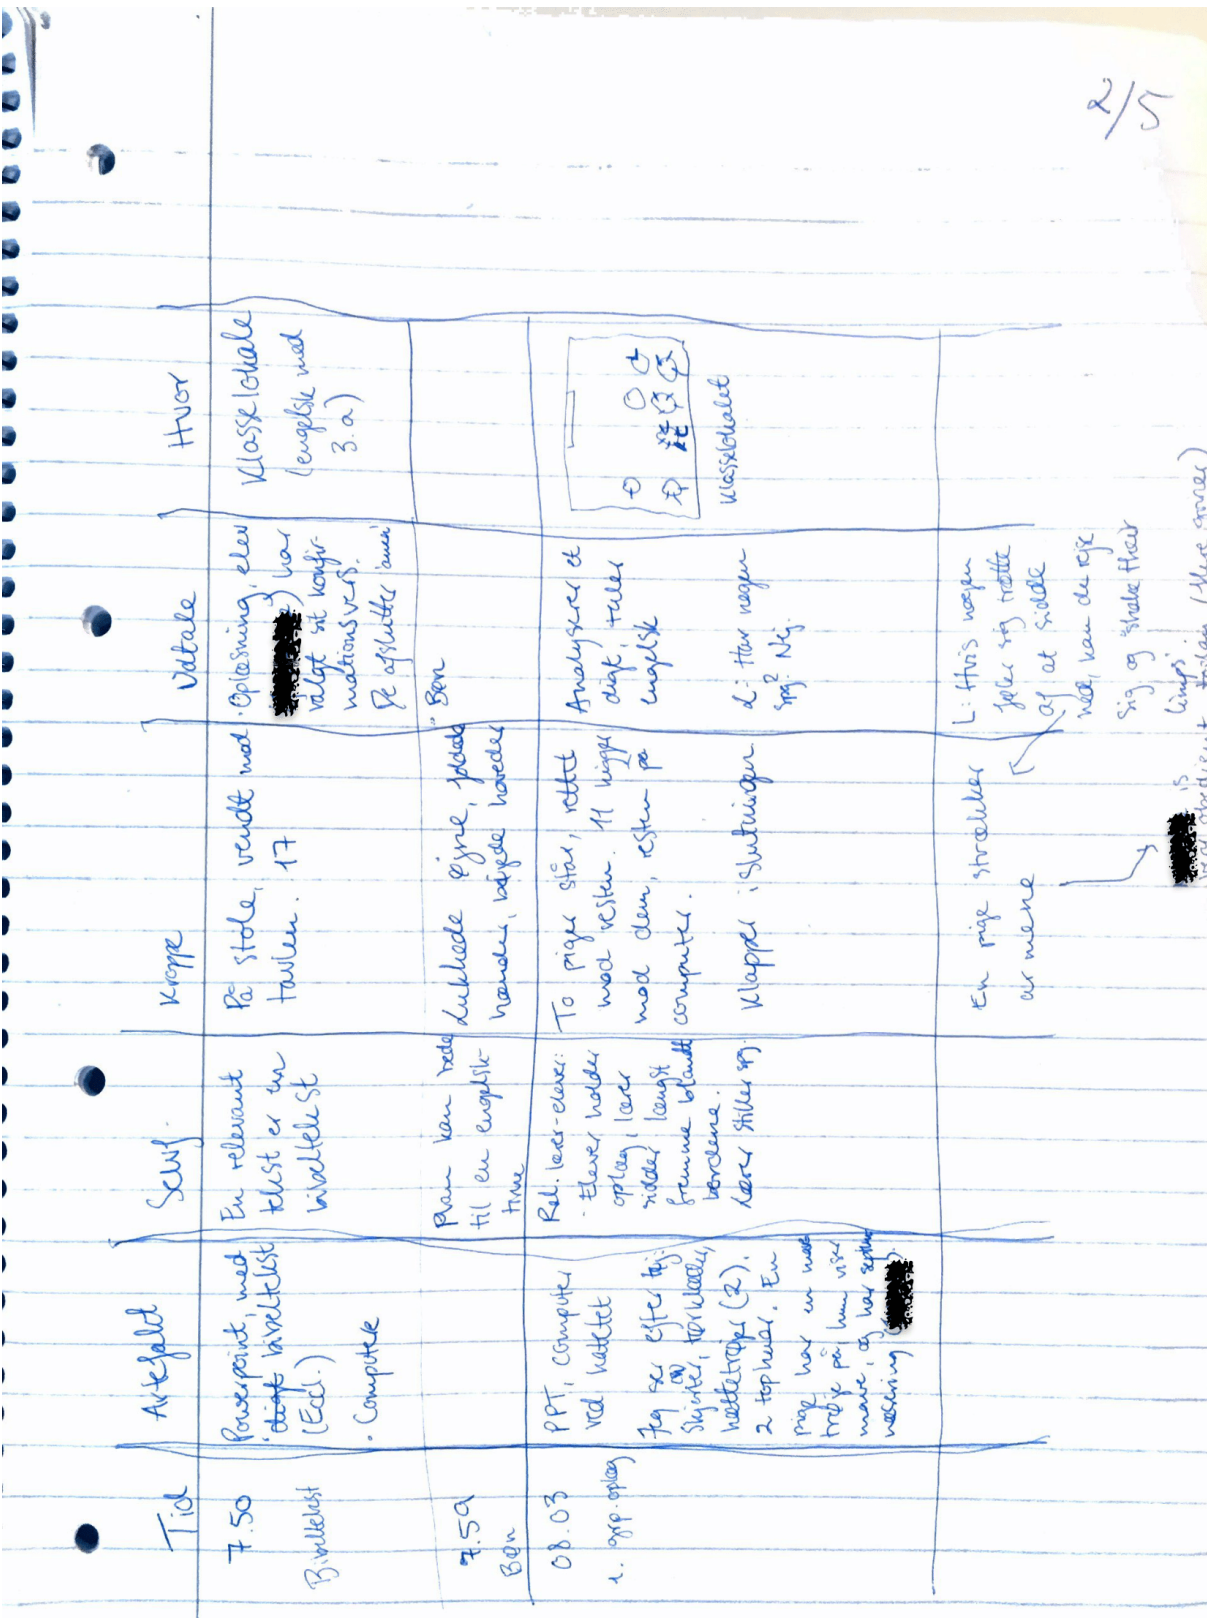 2/5
Tid
Artefakt
Selvf.
Kroppe
Udtale
Hvor
7.50
Bibeltekst
Powerpoint, med
digt bibeltekst
(Eccl.)
· Computere
En relevant
tekst er en
bibeltekst
På stole, vendt mod
tavlen. 17
· Oplæsning, elev
) har
valgt sit konfir-
mationsvers.
De afslutter
Klasselokale
(engelsk med
3.a)
7.59
Bøn
Man kan bede
til en engelsk-
time
Lukkede øjne, foldede
hænder, bøjede hoveder
Bøn
08.03
1. grp. oplæg
PPT, computer
ved kateltet
Jeg ser efter tøj.
Skjorter, tørklæder,
hættetrøjer (2).
2 tophuer. En
pige har en
trøje på, hun viser
mave, og har
næsering
Rel. lærer-elever:
· Elever holder
oplæg, lærer
sidder længst
fremme blandt
bordene.
Lærer stiller spg.
To piger står, rettet
mod resten. 11 kigger
mod dem, resten på
computer.
Klapper i slutningen
Analyserer et
digt, taler
engelsk
L: Har nogen
spg? Nej.
Klasselokalet
En pige strækker
armene
L: Hvis nogen
føler sig trætte
af at sidde
ned, kan du rejse
sig og "shake their
limps".
is